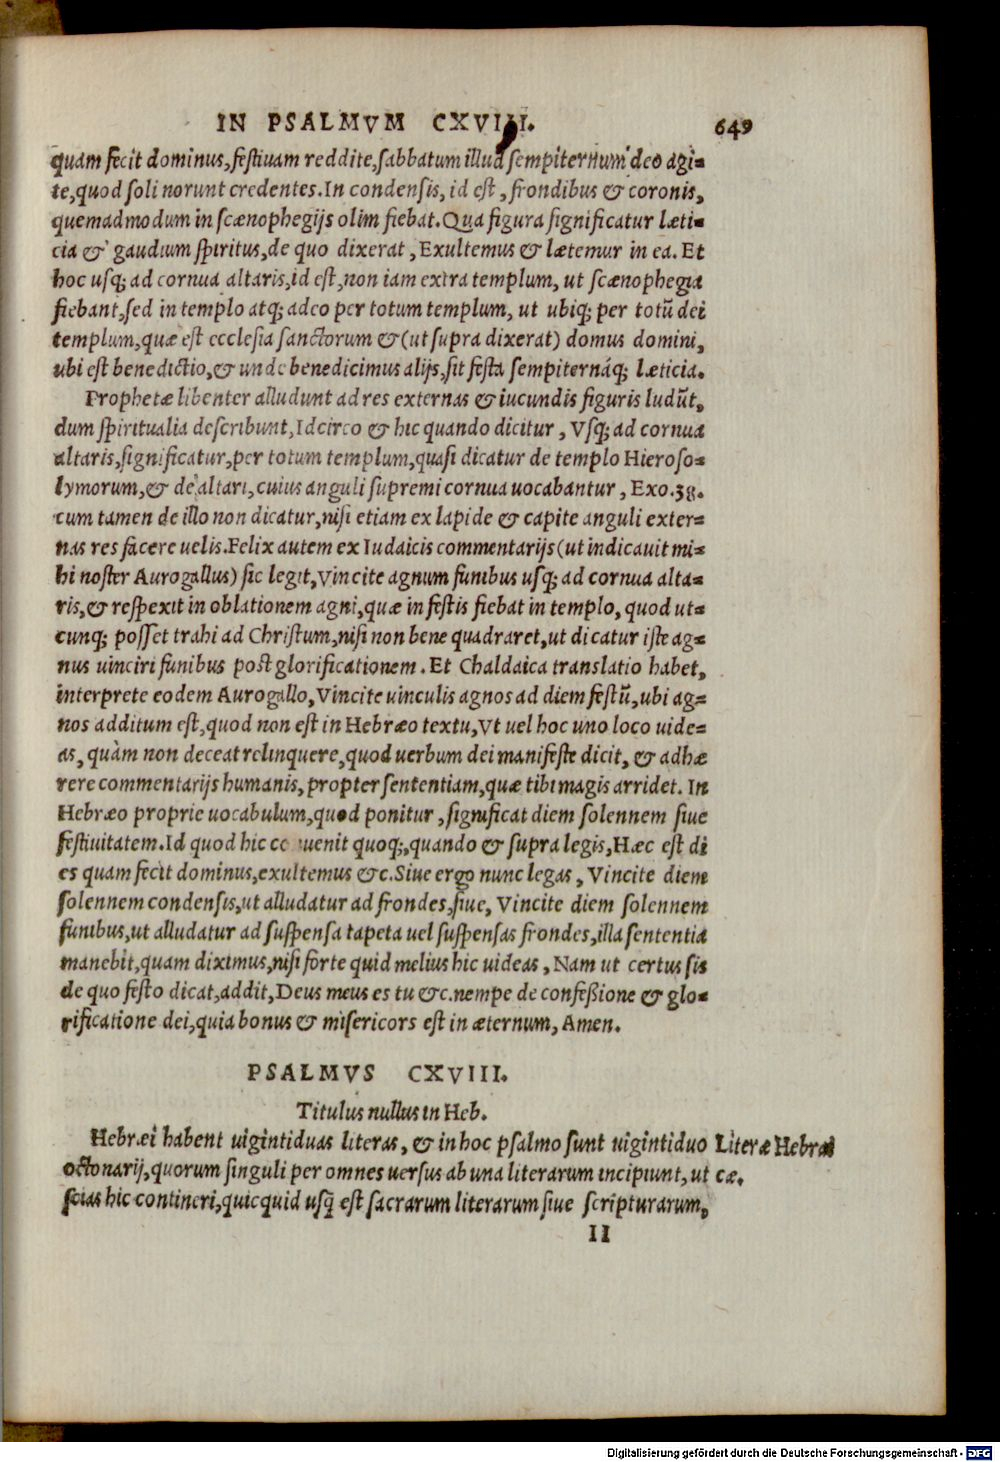 IN PSALMVM CXVIII. 649
quam fecit dominus, festiuam reddite, sabbatum illud sempiternum deo agi=
te, quod soli norunt credentes. In condensis, id est, frondibus & coronis,
quemadmodum in scænophegijs olim fiebat. Qua figura significatur læti=
cia & gaudium spiritus, de quo dixerat, Exultemus & lætemur in ea. Et
hoc usq; ad cornua altaris, id est, non iam extra templum, ut scænophegia
fiebant, sed in templo atq; adeo per totum templum, ut ubiq; per totũ dei
templum, quæ est ecclesia sanctorum & (ut supra dixerat) domus domini,
ubi est benedictio, & unde benedicimus alijs, sit festa sempiternáq; læticia.
Prophetæ libenter alludunt ad res externas & iucundis figuris ludũt,
dum spiritualia describunt, Idcirco & hic quando dicitur, Vsq; ad cornua
altaris, significatur, per totum templum, quasi dicatur de templo Hieroso=
lymorum, & de altari, cuius anguli supremi cornua uocabantur, Exo. 38.
cum tamen de illo non dicatur, nisi etiam ex lapide & capite anguli exter=
nas res facere uelis. Felix autem ex Iudaicis commentarijs (ut indicauit mi=
hi noster Aurogallus) sic legit, Vincite agnum funibus usq; ad cornua alta=
ris, & respexit in oblationem agni, quæ in festis fiebat in templo, quod ut=
cunq; posset trahi ad Christum, nisi non bene quadraret, ut dicatur iste ag=
nus uinciri funibus post glorificationem. Et Chaldaica translatio habet,
interprete eodem Aurogallo, Vincite uinculis agnos ad diem festũ, ubi ag=
nos additum est, quod non est in Hebræo textu, Vt uel hoc uno loco uide=
as, quàm non deceat relinquere, quod uerbum dei manifeste dicit, & adhæ
rere commentarijs humanis, propter sententiam, quæ tibi magis arridet. In
Hebræo proprie uocabulum, quod ponitur, significat diem solennem siue
festiuitatem. Id quod hic conuenit quoq;, quando & supra legis, Hæc est di
es quam fecit dominus, exultemus &c. Siue ergo nunc legas, Vincite diem
solennem condensis, ut alludatur ad frondes, siue, Vincite diem solennem
funibus, ut alludatur ad suspensa tapeta uel suspensas frondes, illa sententia
manebit, quam diximus, nisi forte quid melius hic uideas, Nam ut certus sis
de quo festo dicat, addit, Deus meus es tu &c. nempe de confeßione & glo=
rificatione dei, quia bonus & misericors est in æternum, Amen.
PSALMVS CXVIII.
Titulus nullus in Heb.
Hebræi habent uigintiduas literas, & in hoc psalmo sunt uigintiduo Literæ Hebrai
octonarij, quorum singuli per omnes uersus ab una literarum incipiunt, ut cæ.
scias hic contineri, quicquid usq̃ est sacrarum literarum siue scripturarum,
II
Digitalisierung gefördert durch die Deutsche Forschungsgemeinschaft - DFG